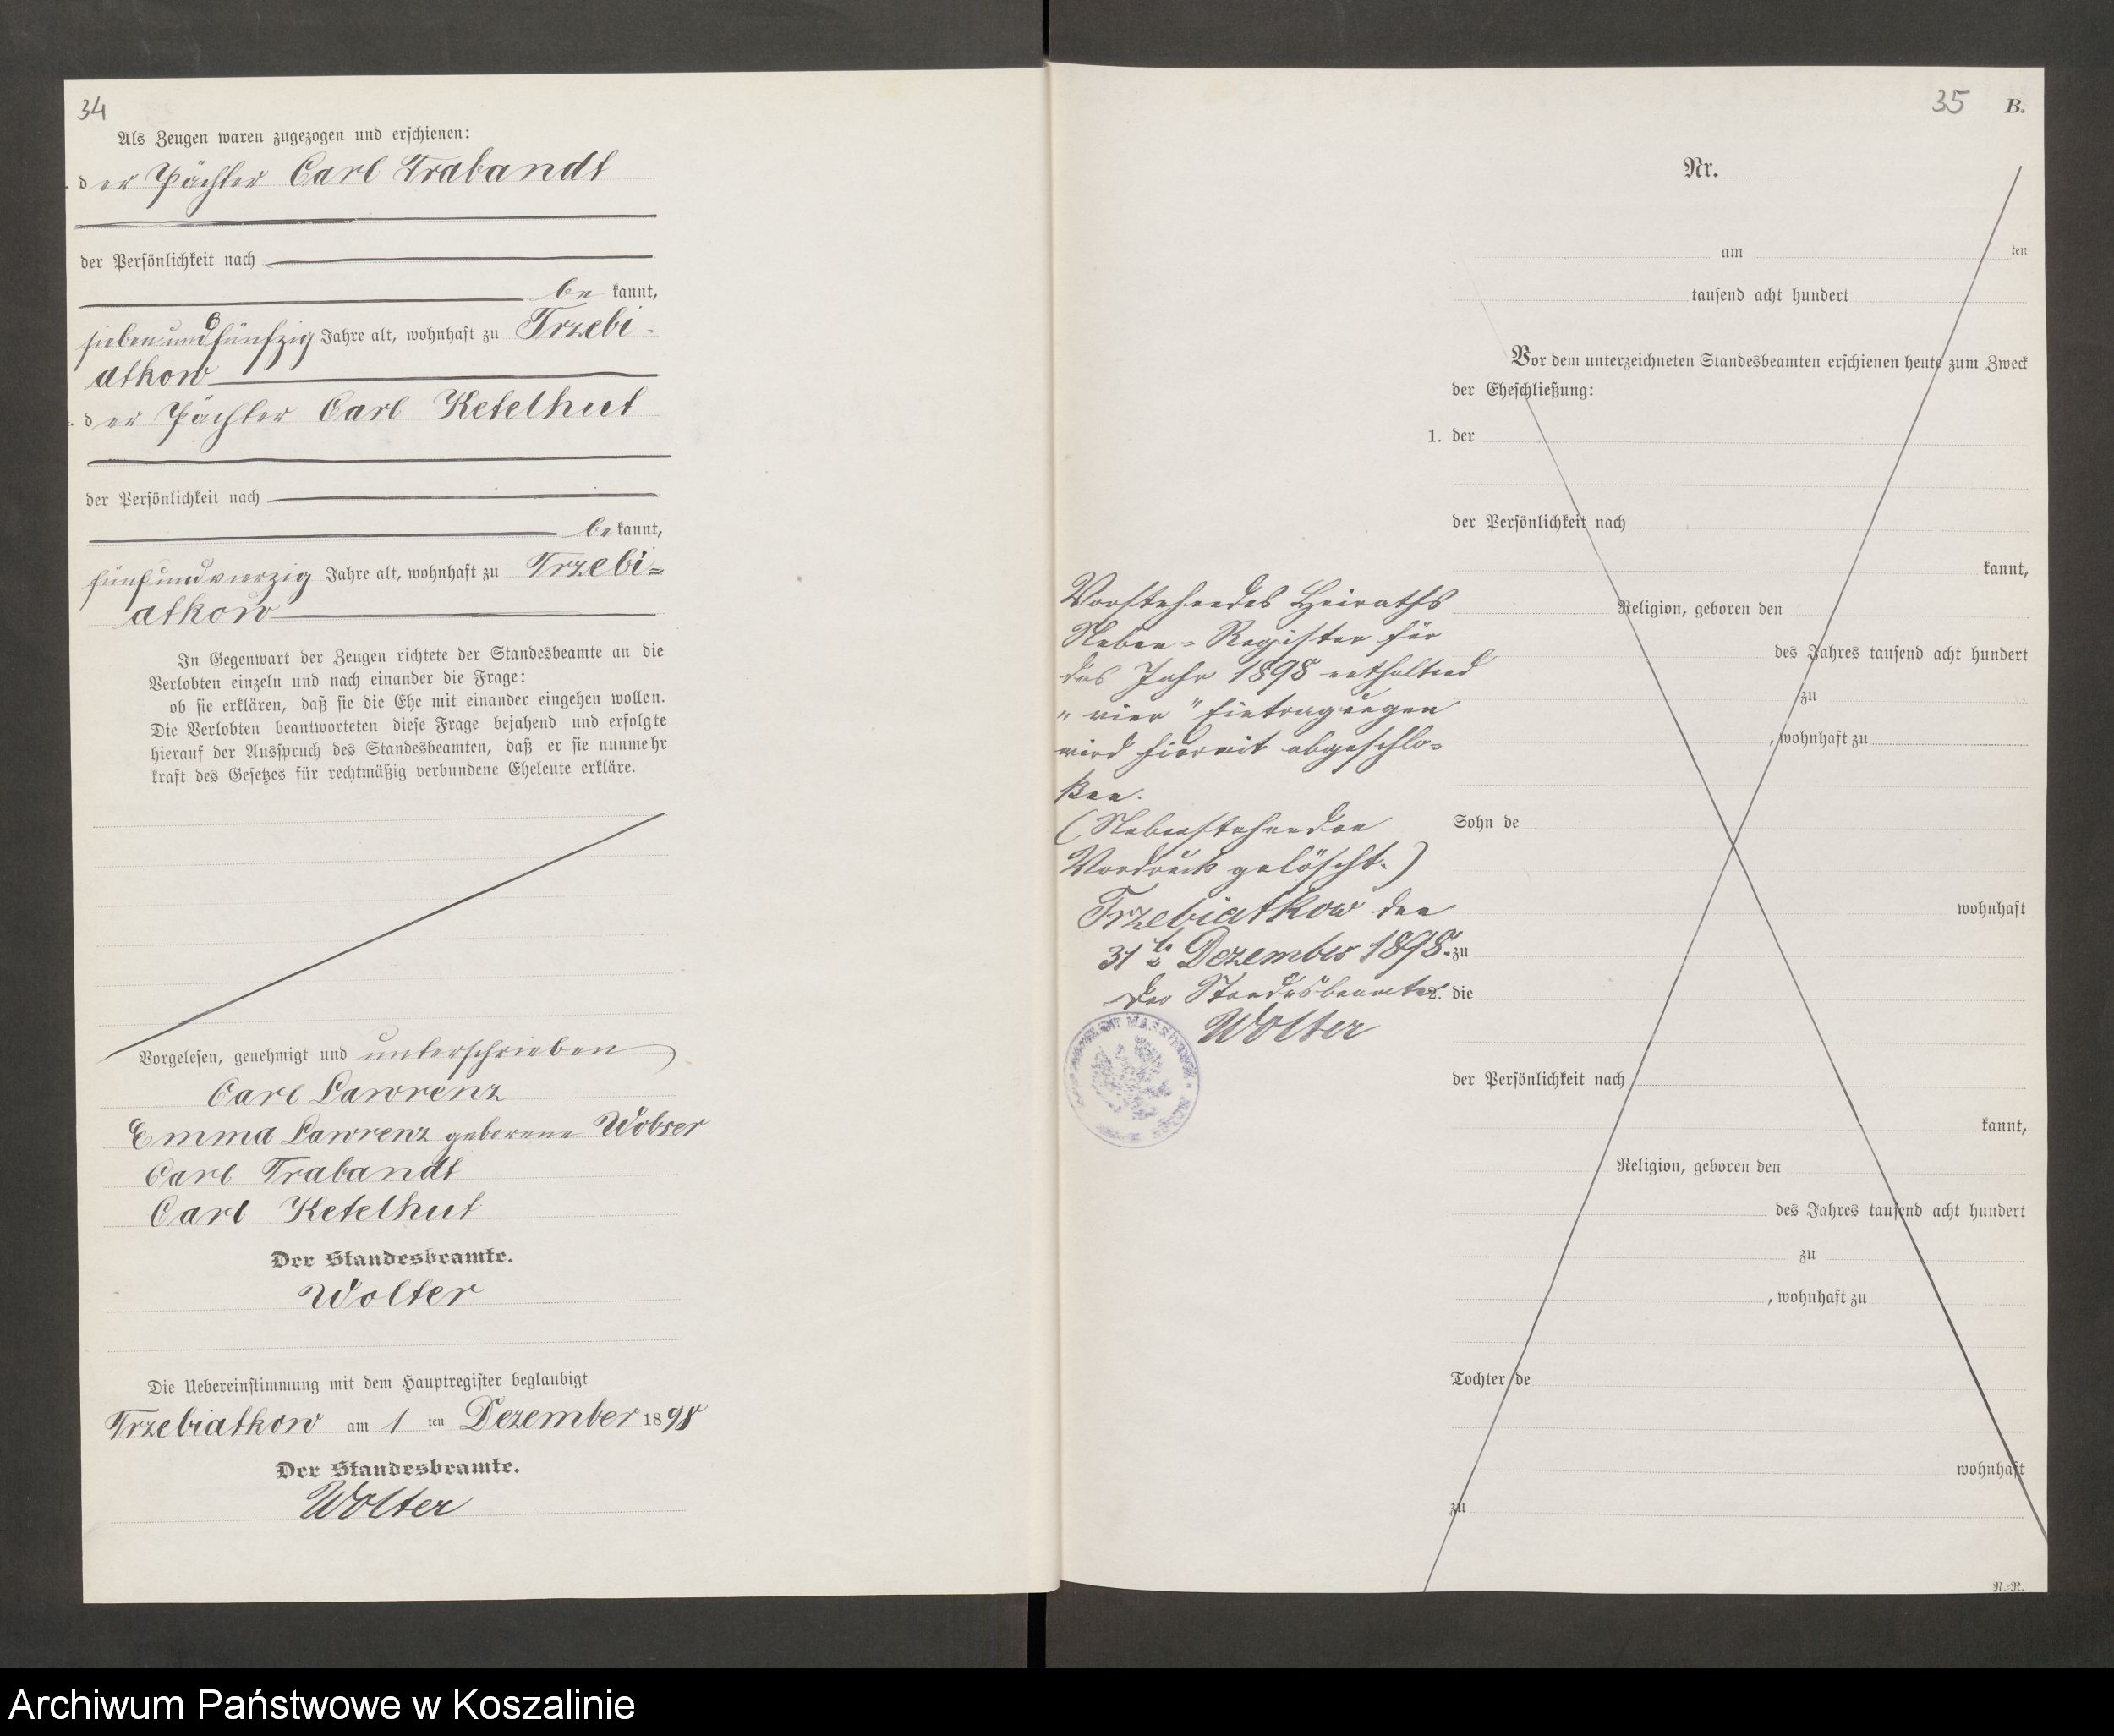 34
Als Zeugen waren zugezogen und erschienen:
der Pächter Carl Trabandt
der Persönlichkeit nach
be kannt,
siebenundfünfzig Jahre alt, wohnhaft zu Trzebi-
atkow
der Pächter Carl Ketelhut
der Persönlichkeit nach
be kannt,
fünfundvierzig Jahre alt, wohnhaft zu Trzebi=
atkow
In Gegenwart der Zeugen richtete der Standesbeamte an die
Verlobten einzeln und nach einander die Frage:
ob sie erklären, daß sie die Ehe mit einander eingehen wollen.
Die Verlobten beantworteten diese Frage bejahend und erfolgte
hierauf der Ausspruch des Standesbeamten, daß er sie nunmehr
kraft des Gesetzes für rechtmäßig verbundene Eheleute erkläre.
Vorgelesen, genehmigt und unterschrieben
Carl Lawrenz
Emma Lawrenz geborene Wobser
Carl Trabandt
Carl Ketelhut
Der Standesbeamte.
Wolter
Die Uebereinstimmung mit dem Hauptregister beglaubigt
Trzebiatkow am 1 ten Dezember 1898
Der Standesbeamte.
Wolter
35 B.
Nr.
am ten
tausend acht hundert
Vor dem unterzeichneten Standesbeamten erschienen heute zum Zweck
der Eheschließung:
1. der
der Persönlichkeit nach
kannt,
Religion, geboren den
des Jahres tausend acht hundert
zu
, wohnhaft zu
Sohn de
wohnhaft
zu
2. die
der Persönlichkeit nach
kannt,
Religion, geboren den
des Jahres tausend acht hundert
zu
, wohnhaft zu
Tochter de
wohnhaft
zu
N.-R.
Vorstehendes Heiraths
Neben=Register für
das Jahr 1898 enthaltend
"vier" Eintragungen
wird hiermit abgeschlo=
ßen.
(Nebenstehenden
Vordruck gelöscht.)
Trzebiatkow den
31ten Dezember 1898.
Der Standesbeamte
Wolter
Archiwum Państwowe w Koszalinie